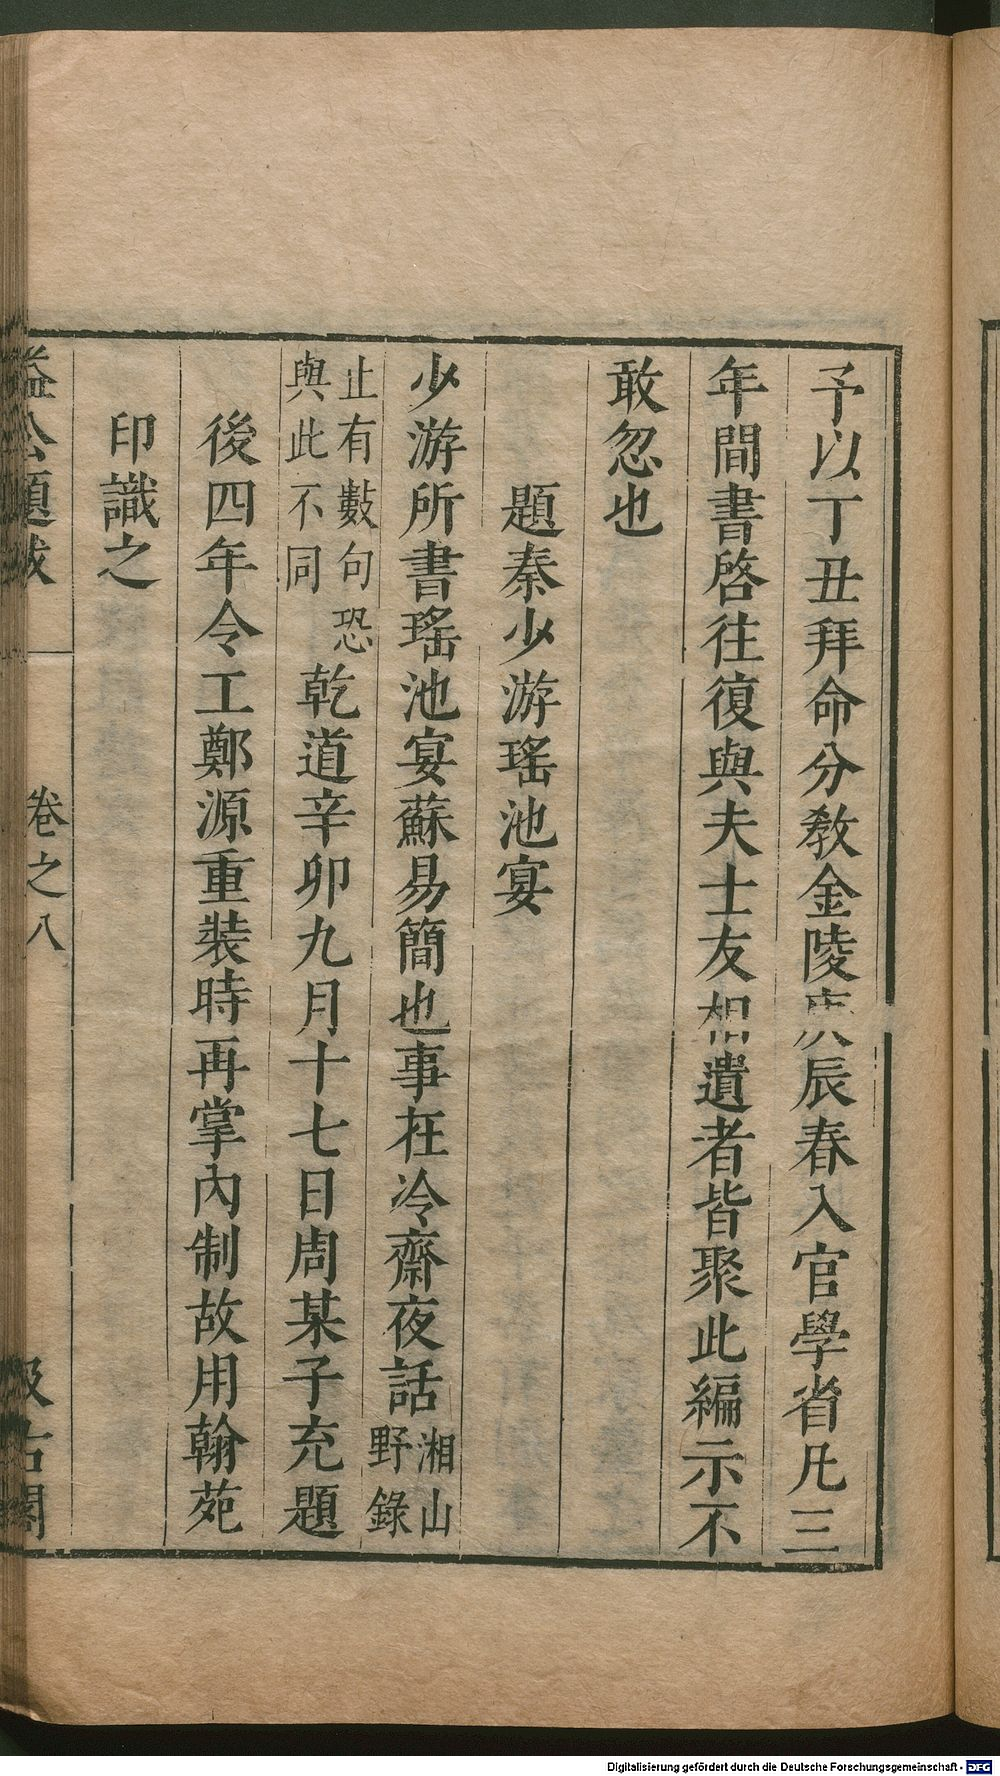 予以丁丑拜命分敎金陵庚辰春入官學省凡三
年間書啓往復與夫士友相遺者皆聚此編示不
敢忽也
題秦少游瑤池宴
少游所書瑤池宴蘇易簡也事在冷齋夜話湘山
野錄
止有數句恐
與此不同
乾道辛卯九月十七日周某子充題
後四年令工鄭源重裝時再掌內制故用翰苑
印識之
益公題跋
卷之八
汲古閣
Digitalisierung gefördert durch die Deutsche Forschungsgemeinschaft - DFG